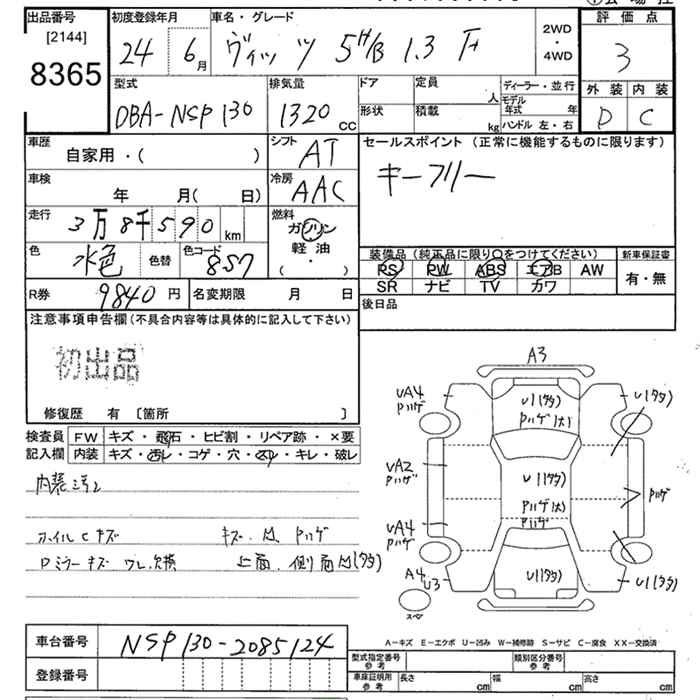 出品番号 [2144] 8365
初度登録年月 24 6月
車名・グレード ヴィッツ 5H/B 1.3 F
2WD・4WD
評価点 3
外装 D 内装 C
型式 DBA-NSP130
排気量 1320cc
ドア 形状
定員 人 積載 kg
ディーラー・並行
モデル年式 年
ハンドル 左・右
車歴 自家用・( )
シフト AT
セールスポイント (正常に機能するものに限ります)
キーフリー
車検 年 月( 日)
冷房 AAC
走行 3万8千590km
燃料 ガソリン 軽油 ( ・ )
色 水色 色替 色コード 8S7
装備品 (純正品に限り○をつけてください)
新車保証書 有・無
PS PW ABS エアB AW
SR ナビ TV カワ
R券 9840円 名変期限 月 日
後日品
注意事項申告欄(不具合内容等は具体的に記入して下さい)
初出品
修復歴 有 〔箇所 〕
検査員記入欄
FW キズ・飛石・ヒビ割・リペア跡・×要
内装 キズ・汚レ・コゲ・穴・スリ・キレ・破レ
ホイルCキズ キズ.凹.Pハゲ
Dミラーキズ ワレ.欠損 上面.側面凹(タタ)
A3
UA4 Pハゲ
U1(タタ) Pハゲ(大)
U1(タタ)
UA2 Pハゲ
U1(タタ) Pハゲ(大)
Pハゲ
Pハゲ
UA4 Pハゲ
A4 U3
U1(タタ)
U1(タタ)
スペア
A-キズ E-エクボ U-凹み W-補修跡 S-サビ C-腐食 XX-交換済
車台番号 NSP130-2085124
登録番号
型式指定番号 参考
類別区分番号 参考
車庫証明用 参考 長さ cm 幅 cm 高さ cm